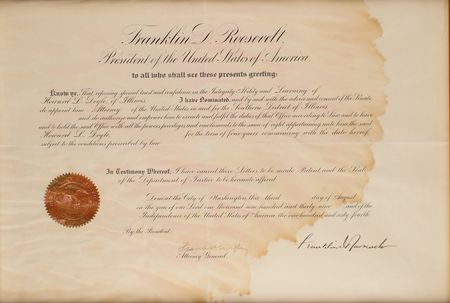 Franklin D. Roosevelt,
President of the United States of America,
to all who shall see these presents greeting:
Know ye, That reposing special trust and confidence in the Integrity, Ability and Learning of
Howard L. Doyle, of Illinois, I have Nominated, and, by and with the advice and consent of the Senate
do appoint him Attorney of the United States in and for the Southern District of Illinois,
and do authorize and empower him to execute and fulfil the duties of that Office according to Law, and to have
and to hold the said Office, with all the powers, privileges and emoluments to the same of right appertaining unto him the said
Howard L. Doyle, for the term of four years, commencing with the date hereof,
subject to the conditions prescribed by law
In Testimony Whereof, I have caused these Letters to be made Patent, and the Seal
of the Department of Justice to be hereunto affixed.
Done at the City of Washington this third day of August
in the year of our Lord one thousand nine hundred and thirty-nine and of the
Independence of the United States of America the one hundred and sixty-fourth.
By the President:
Frank Murphy
Attorney General.
Franklin D Roosevelt